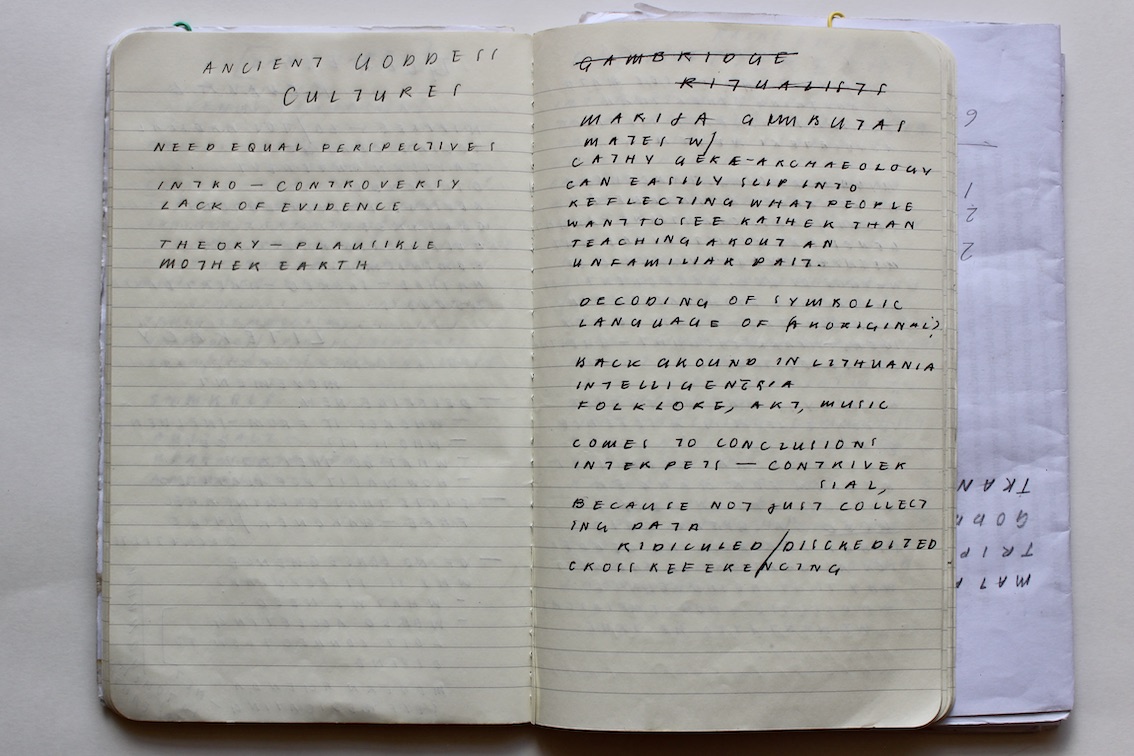 ANCIENT GODDESS
CULTURES
NEED EQUAL PERSPECTIVES
INTRO — CONTROVERSY
LACK OF EVIDENCE
THEORY — PLAUSIBLE
MOTHER EARTH
CAMBRIDGE
RITUALISTS
MARIJA GIMBUTAS
MATES W/
CATHY GERE-ARCHAEOLOGY
CAN EASILY SLIP INTO
REFLECTING WHAT PEOPLE
WANT TO SEE RATHER THAN
TEACHING ABOUT AN
UNFAMILIAR PAST.
DECODING OF SYMBOLIC
LANGUAGE OF (ABORIGINAL?
BACK GROUND IN LITHUANIA
INTELLIGENTSIA
FOLKLORE, ART, MUSIC
COMES TO CONCLUSIONS
INTERPETS — CONTRIVER
SIAL,
BECAUSE NOT JUST COLLECT
ING DATA
RIDICULED/DISCREDITED
CROSS REFERENCING
6
1
2
2
TRAN
GODD
TRIP
MATA